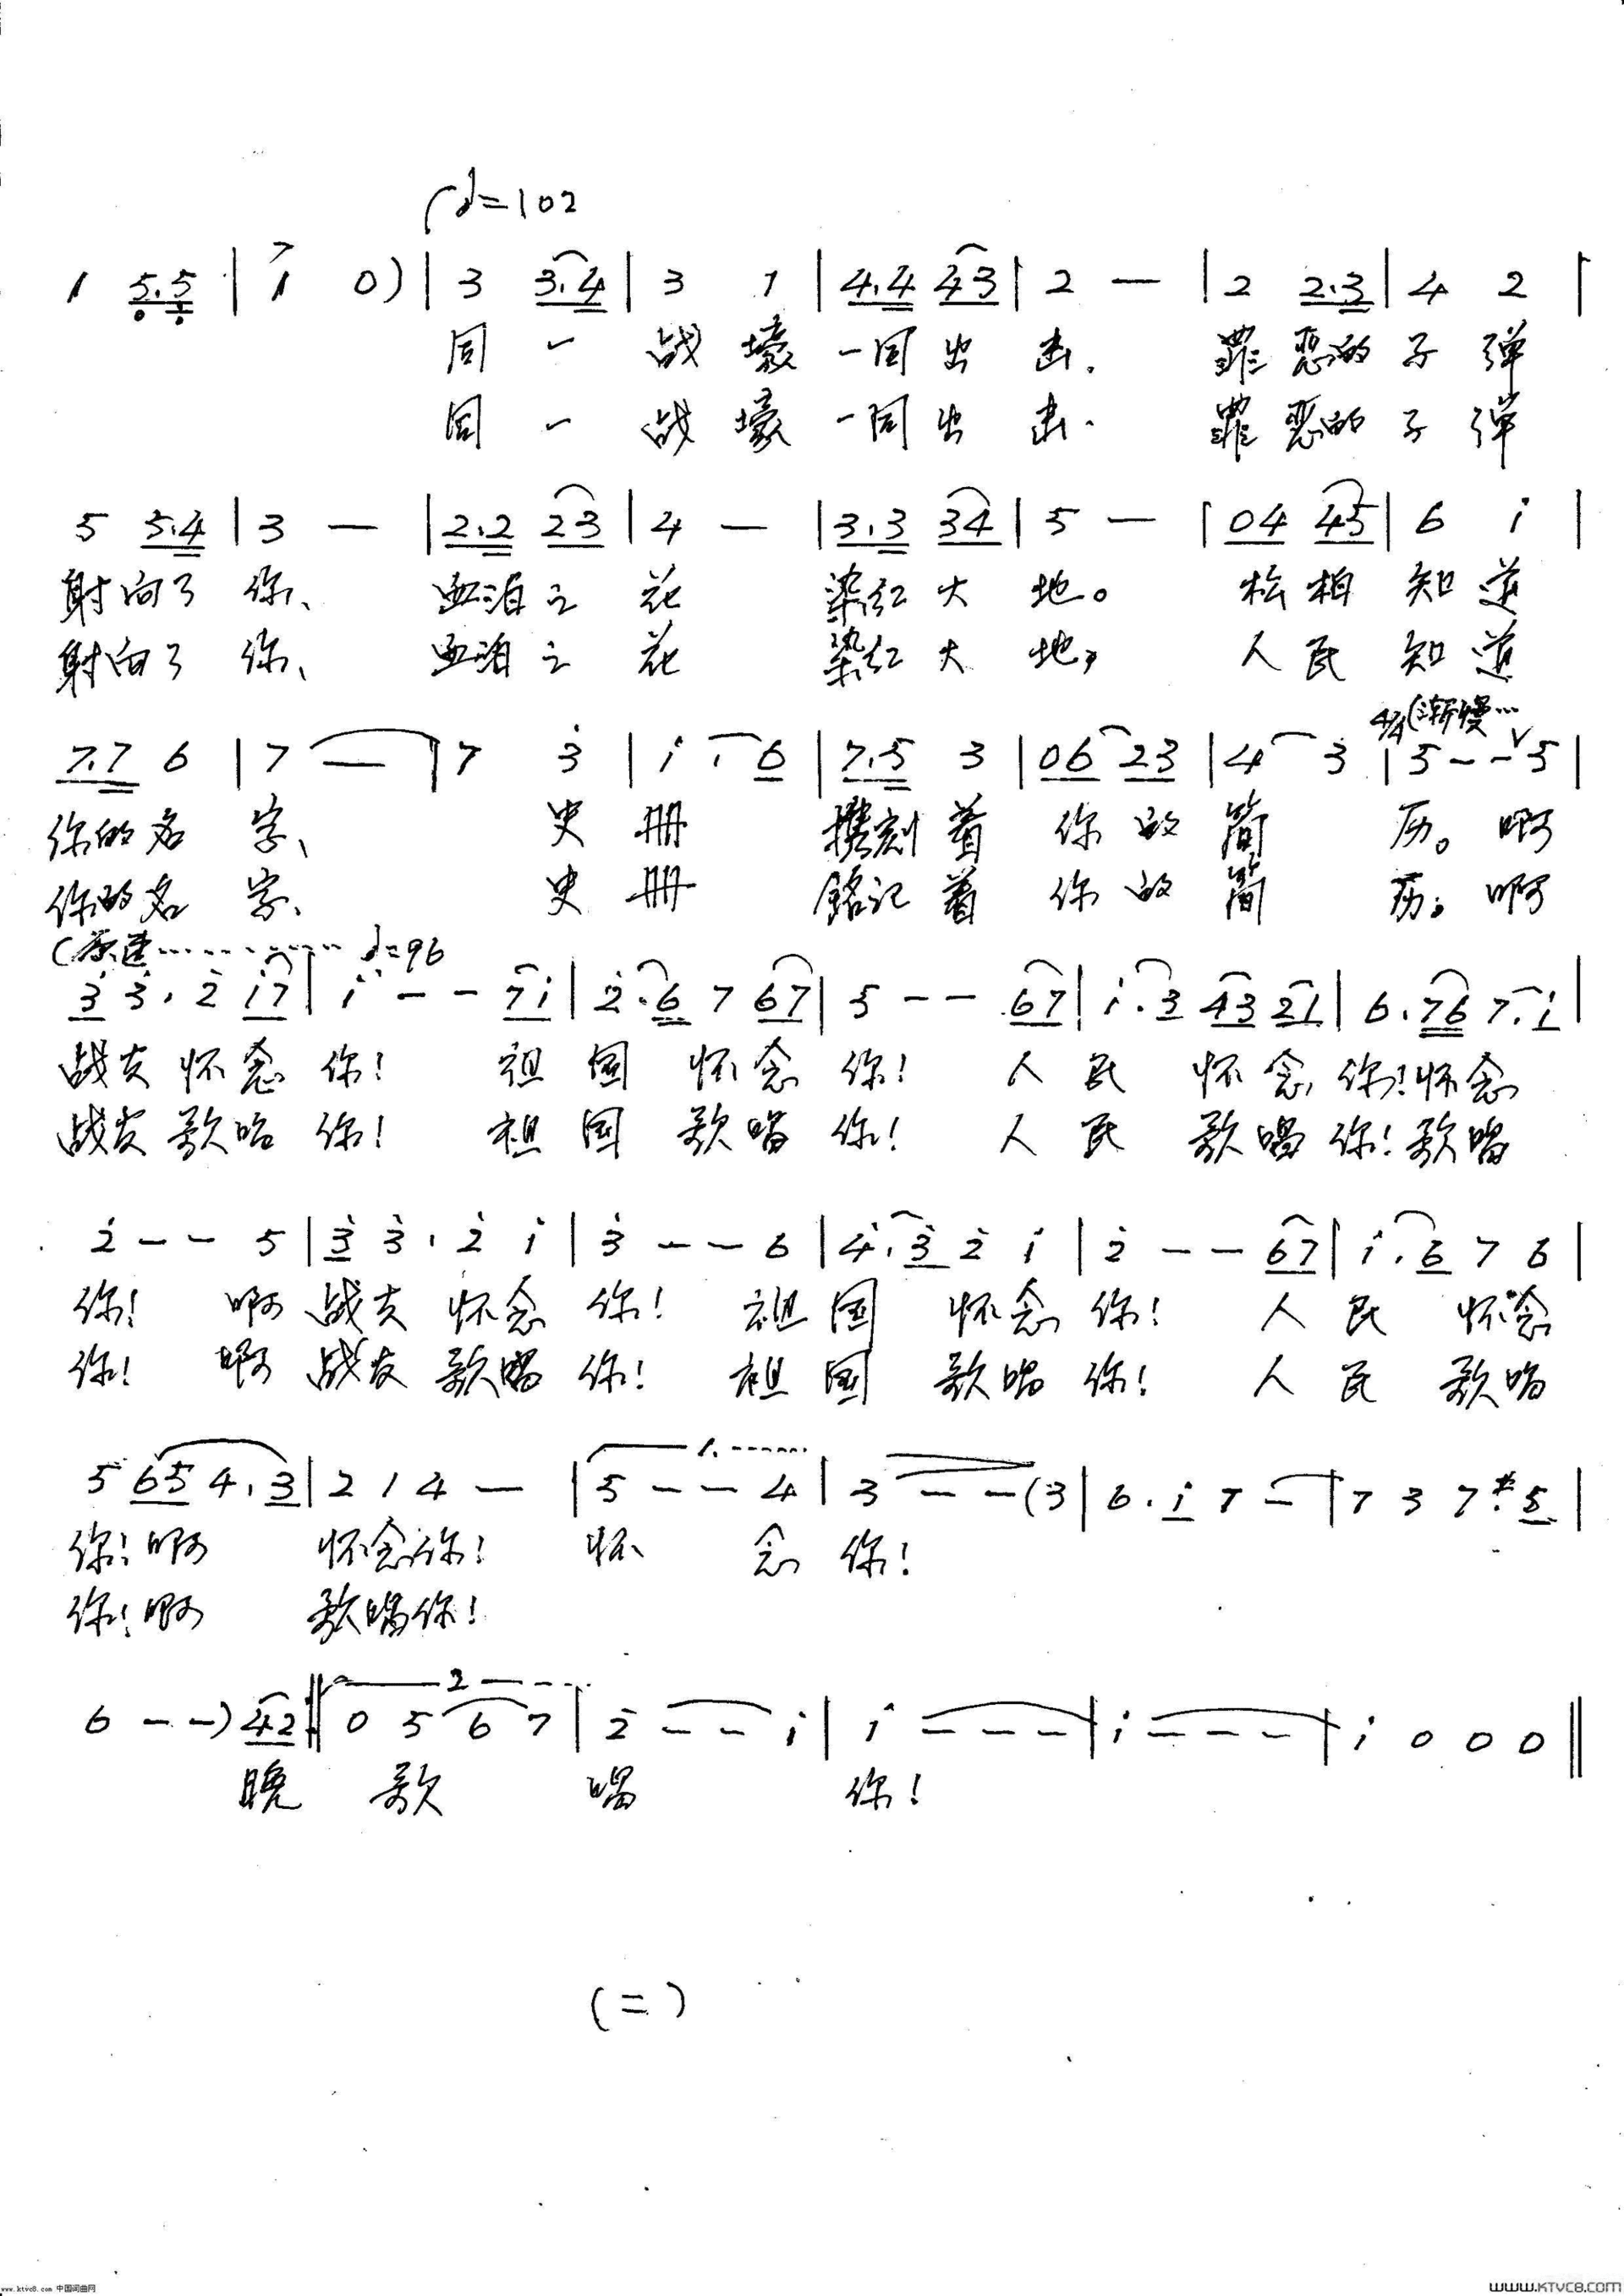 ♩=102
1 5.5 | 1 0) | 3 3.4 | 3 1 | 4.4 43 | 2 — | 2 2.3 | 4 2 |
同 一 战 壕 一同 出 击. 罪 恶的 子 弹
同 一 战 壕 一同 出 击. 罪 恶的 子 弹
5 5.4 | 3 — | 2.2 23 | 4 — | 3.3 34 | 5 — | 04 45 | 6 i |
射 向了 你、 血泊 之 花 染红 大 地。 松 柏 知 道
射 向了 你、 血泊 之 花 染红 大 地, 人 民 知 道
4/4 (渐慢…
7.7 6 | 7 — | 7 3 | i . 6 | 7.5 3 | 06 23 | 4 3 | 5 - - 5 |
你的 名 字、 史 册 刻 着 你 的 简 历。 啊
你的 名 字、 史 册 铭记 着 你 的 简 历; 啊
(原速………… ♩=96
3 3. 2 i7 | i - - 7i | 2.6 7 67 | 5 - - 67 | i.3 43 21 | 6.76 7.i |
战友 怀 念 你! 祖 国 怀 念 你! 人 民 怀 念 你! 怀念
战友 歌唱 你! 祖 国 歌唱 你! 人 民 歌唱 你! 歌唱
2 - - 5 | 3 3. 2 i | 3 - - 6 | 4.3 2 i | 2 - - 67 | i.6 7 6 |
你! 啊 战友 怀念 你! 祖 国 怀念 你! 人 民 怀念
你! 啊 战友 歌唱 你! 祖 国 歌唱 你! 人 民 歌唱
1.
5 65 4.3 | 2 1 4 — | 5 - - 4 | 3 - - (3 | 6.i 7 - | 7 3 7. #5 |
你! 啊 怀念你! 怀 念 你!
你! 啊 歌唱你!
2
6 - -) 42 :‖ 0 5 6 7 | 2 - - i | i - - - | i - - - | i 0 0 0 ‖
晚 歌 唱 你!
(二)
www.ktvc8.com 中国词曲网
WWW.KTVC8.COM